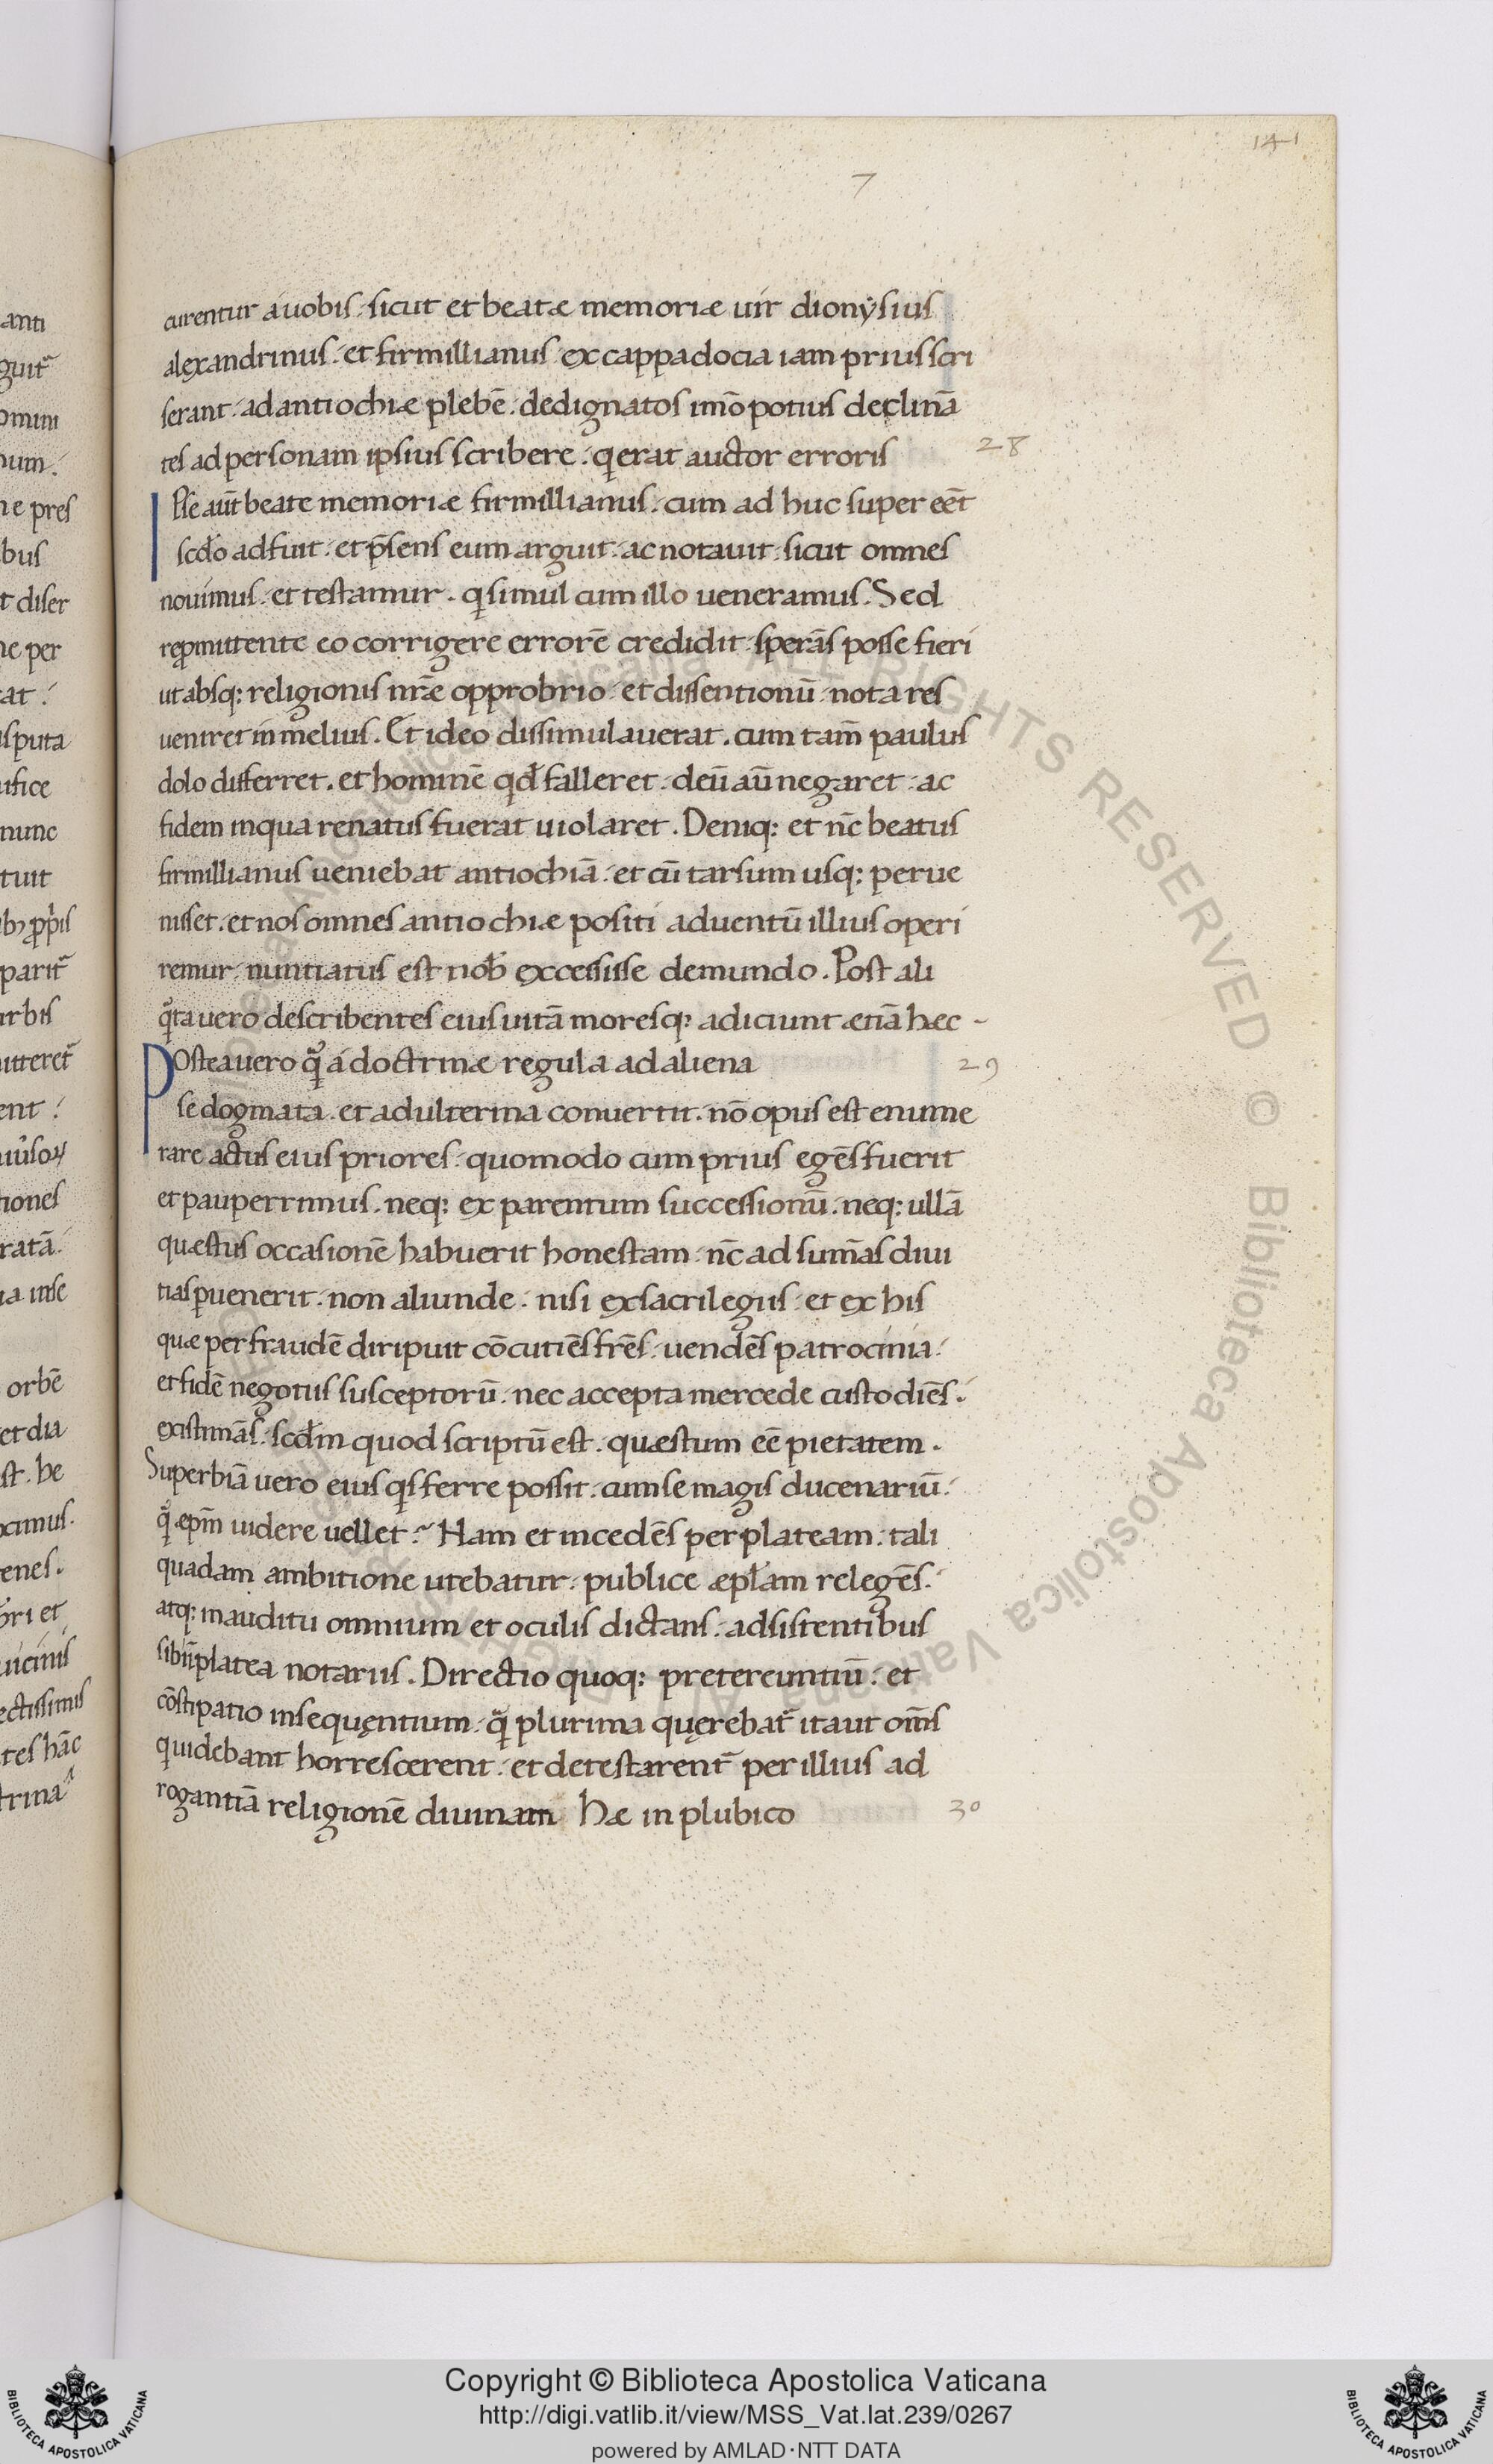 141
7
curentur a uobis. sicut et beatæ memoriæ uir dionysius
alexandrinus. et firmillianus ex cappadocia iam prius scri
serant. ad antiochiæ plebē. dedignatos imō potius declinā
tes ad personam ipsius scribere. q erat auctor erroris
28
Ipse aūt beate memoriæ firmillianus. cum ad huc super eēt
scdo adfuit. et p̄sens eum arguit. ac notauit. sicut omnes
nouimus. et testamur. q simul cum illo ueneramus. Sed
repmittente eo corrigere errorē credidit. sperās posse fieri
ut absq: religionis nr̄æ opprobrio. et dissentionū nota res
ueniret in melius. Et ideo dissimulauerat. cum tam̄ paulus
dolo differret. et hominē qđ falleret. deū aū negaret. ac
fidem in qua renatus fuerat uiolaret. Deniq: et nc̄ beatus
firmillianus ueniebat antiochiā. et cū tarsum usq: perue
nisset. et nos omnes antiochiæ positi aduentū illius operi
remur. nuntiatus est nob excessisse de mundo. Post ali
qta uero describentes eius uitā moresq: adiciunt ætiā hæc
Postea uero q a doctrinæ regula ad aliena
29
se dogmata. et adulterina conuertit. nō opus est enume
rare actus eius priores. quomodo cum prius egēs fuerit
et pauperrimus. neq: ex parentum successionū. neq: ullā
quæstus occasionē habuerit honestam. nc̄ ad sum̄as diui
tias puenerit. non aliunde. nisi ex sacrilegiis. et ex his
quæ per fraudē diripuit cōcutiēs frēs. uendēs patrocinia.
et fidē negotiis susceptorū. nec accepta mercede custodiēs.
existimās. scđm quod scriptū est. quæstum eē pietatem.
Superbiā uero eius qs ferre possit. cum se magis ducenariū.
q æpm̄ uidere uellet. Nam et incedēs per plateam. tali
quadam ambitione utebatur. publice æpłam relegēs.
atq: in auditu omnium et oculis dictans. adsistentibus
sibi in platea notariis. Directio quoq: pretereuntiū. et
cōstipatio insequęntium. q plurima quęrebat̄ ita ut om̄s
qui debant horrescerent. et detestarent̄ per illius ad
rogantiā religionē diuinam Hæ in plubico
30
anti
omini
num.
ne pres
bus
t diser
ne per
at
isputa
ifice
nunc
tuit
parit̄
urbis
itteret̄
ent
tiones
ratā.
ia inse
orbē
et dia
st. he
enes.
uicinis
ectissimis
tes hāc
trina
ALL RIGHTS RESERVED © Biblioteca Apostolica Vaticana
Copyright © Biblioteca Apostolica Vaticana
http://digi.vatlib.it/view/MSS_Vat.lat.239/0267
powered by AMLAD·NTT DATA
BIBLIOTECA APOSTOLICA VATICANA
BIBLIOTECA APOSTOLICA VATICANA